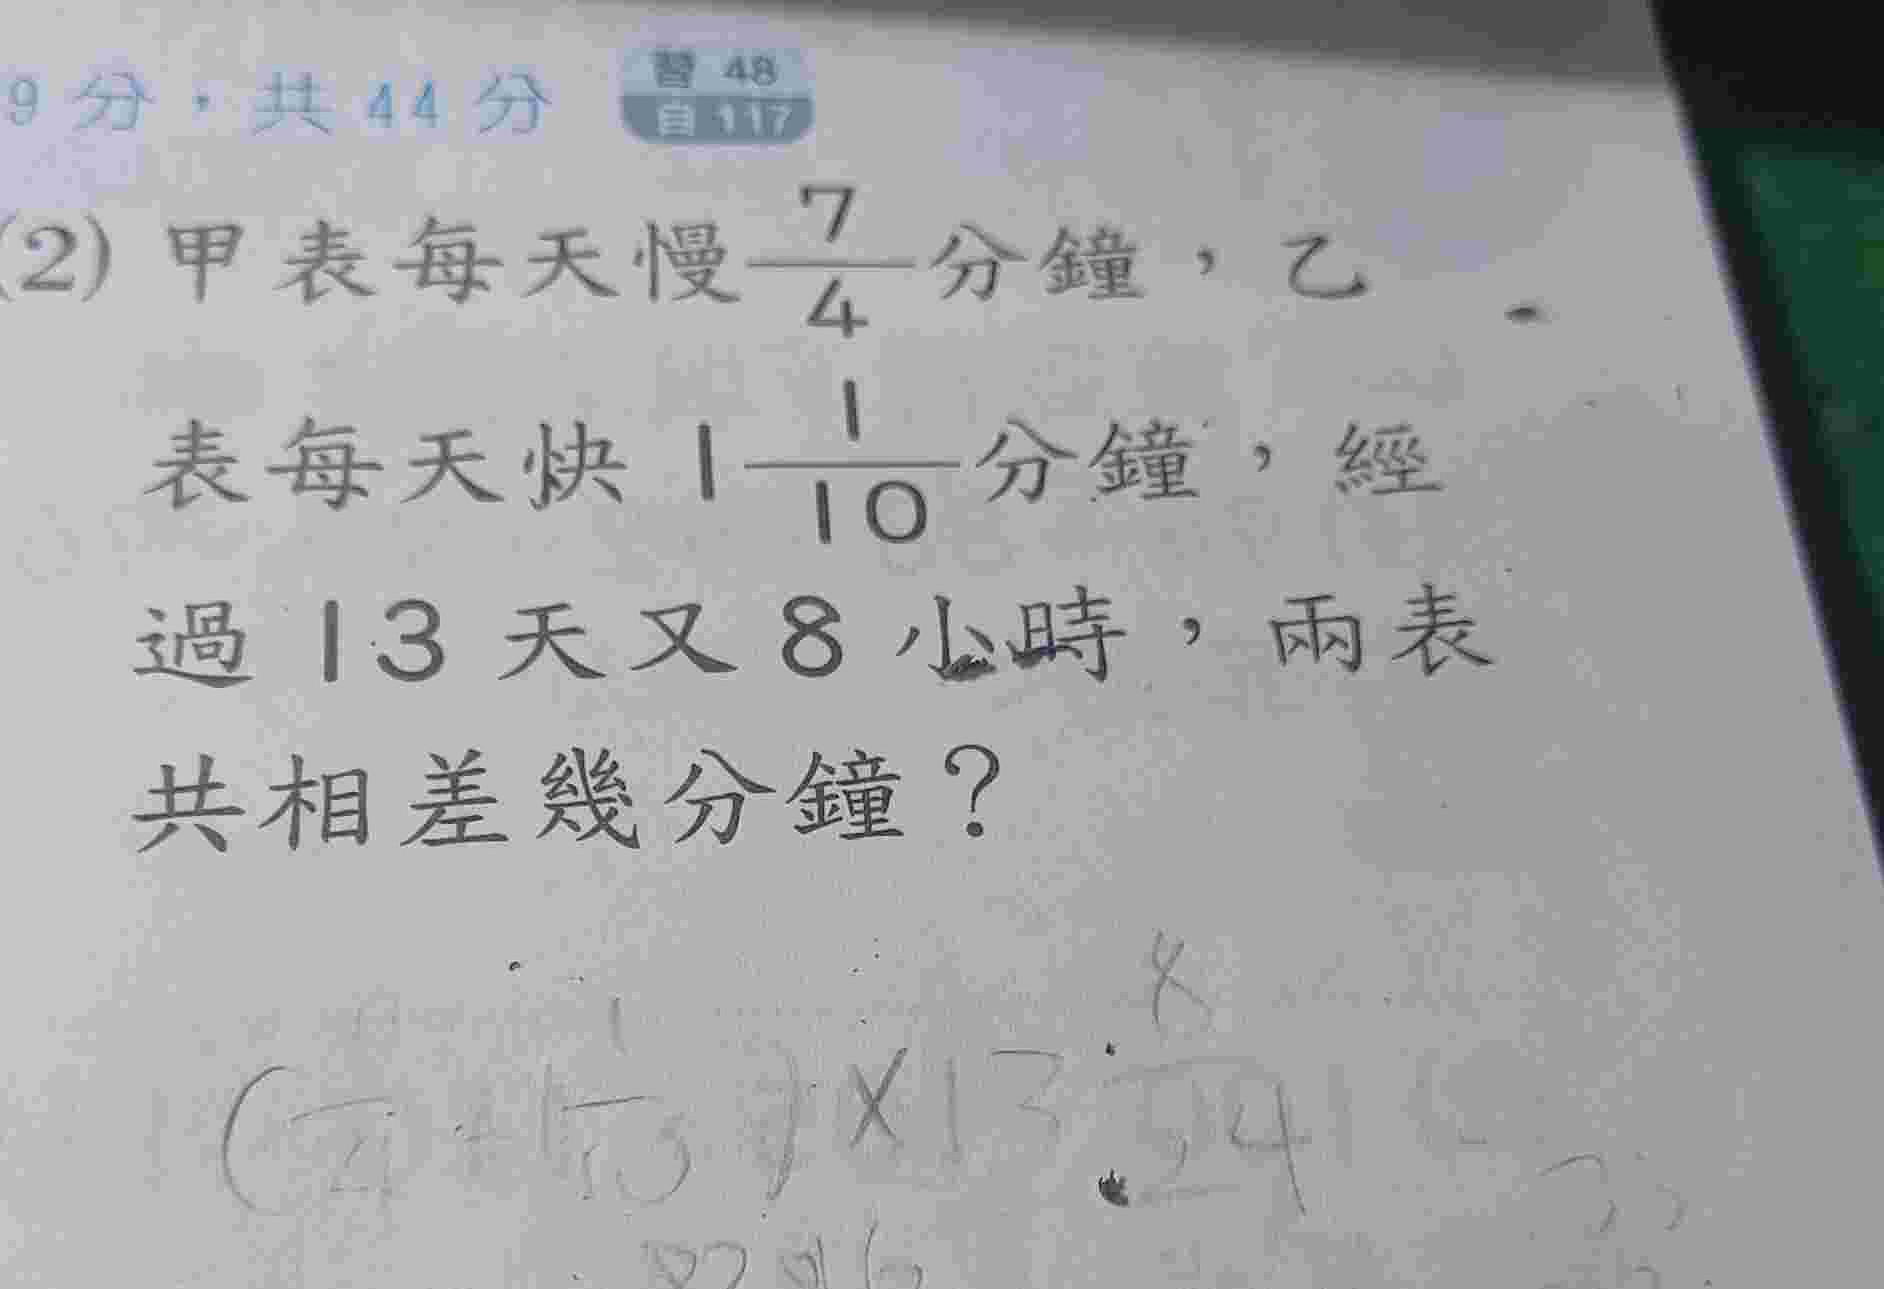 9 分，共 44 分
習 48
自 117
(2) 甲表每天慢 7/4 分鐘，乙
表每天快 1 1/10 分鐘，經
過 13 天又 8 小時，兩表
共相差幾分鐘？
× 13 8/24